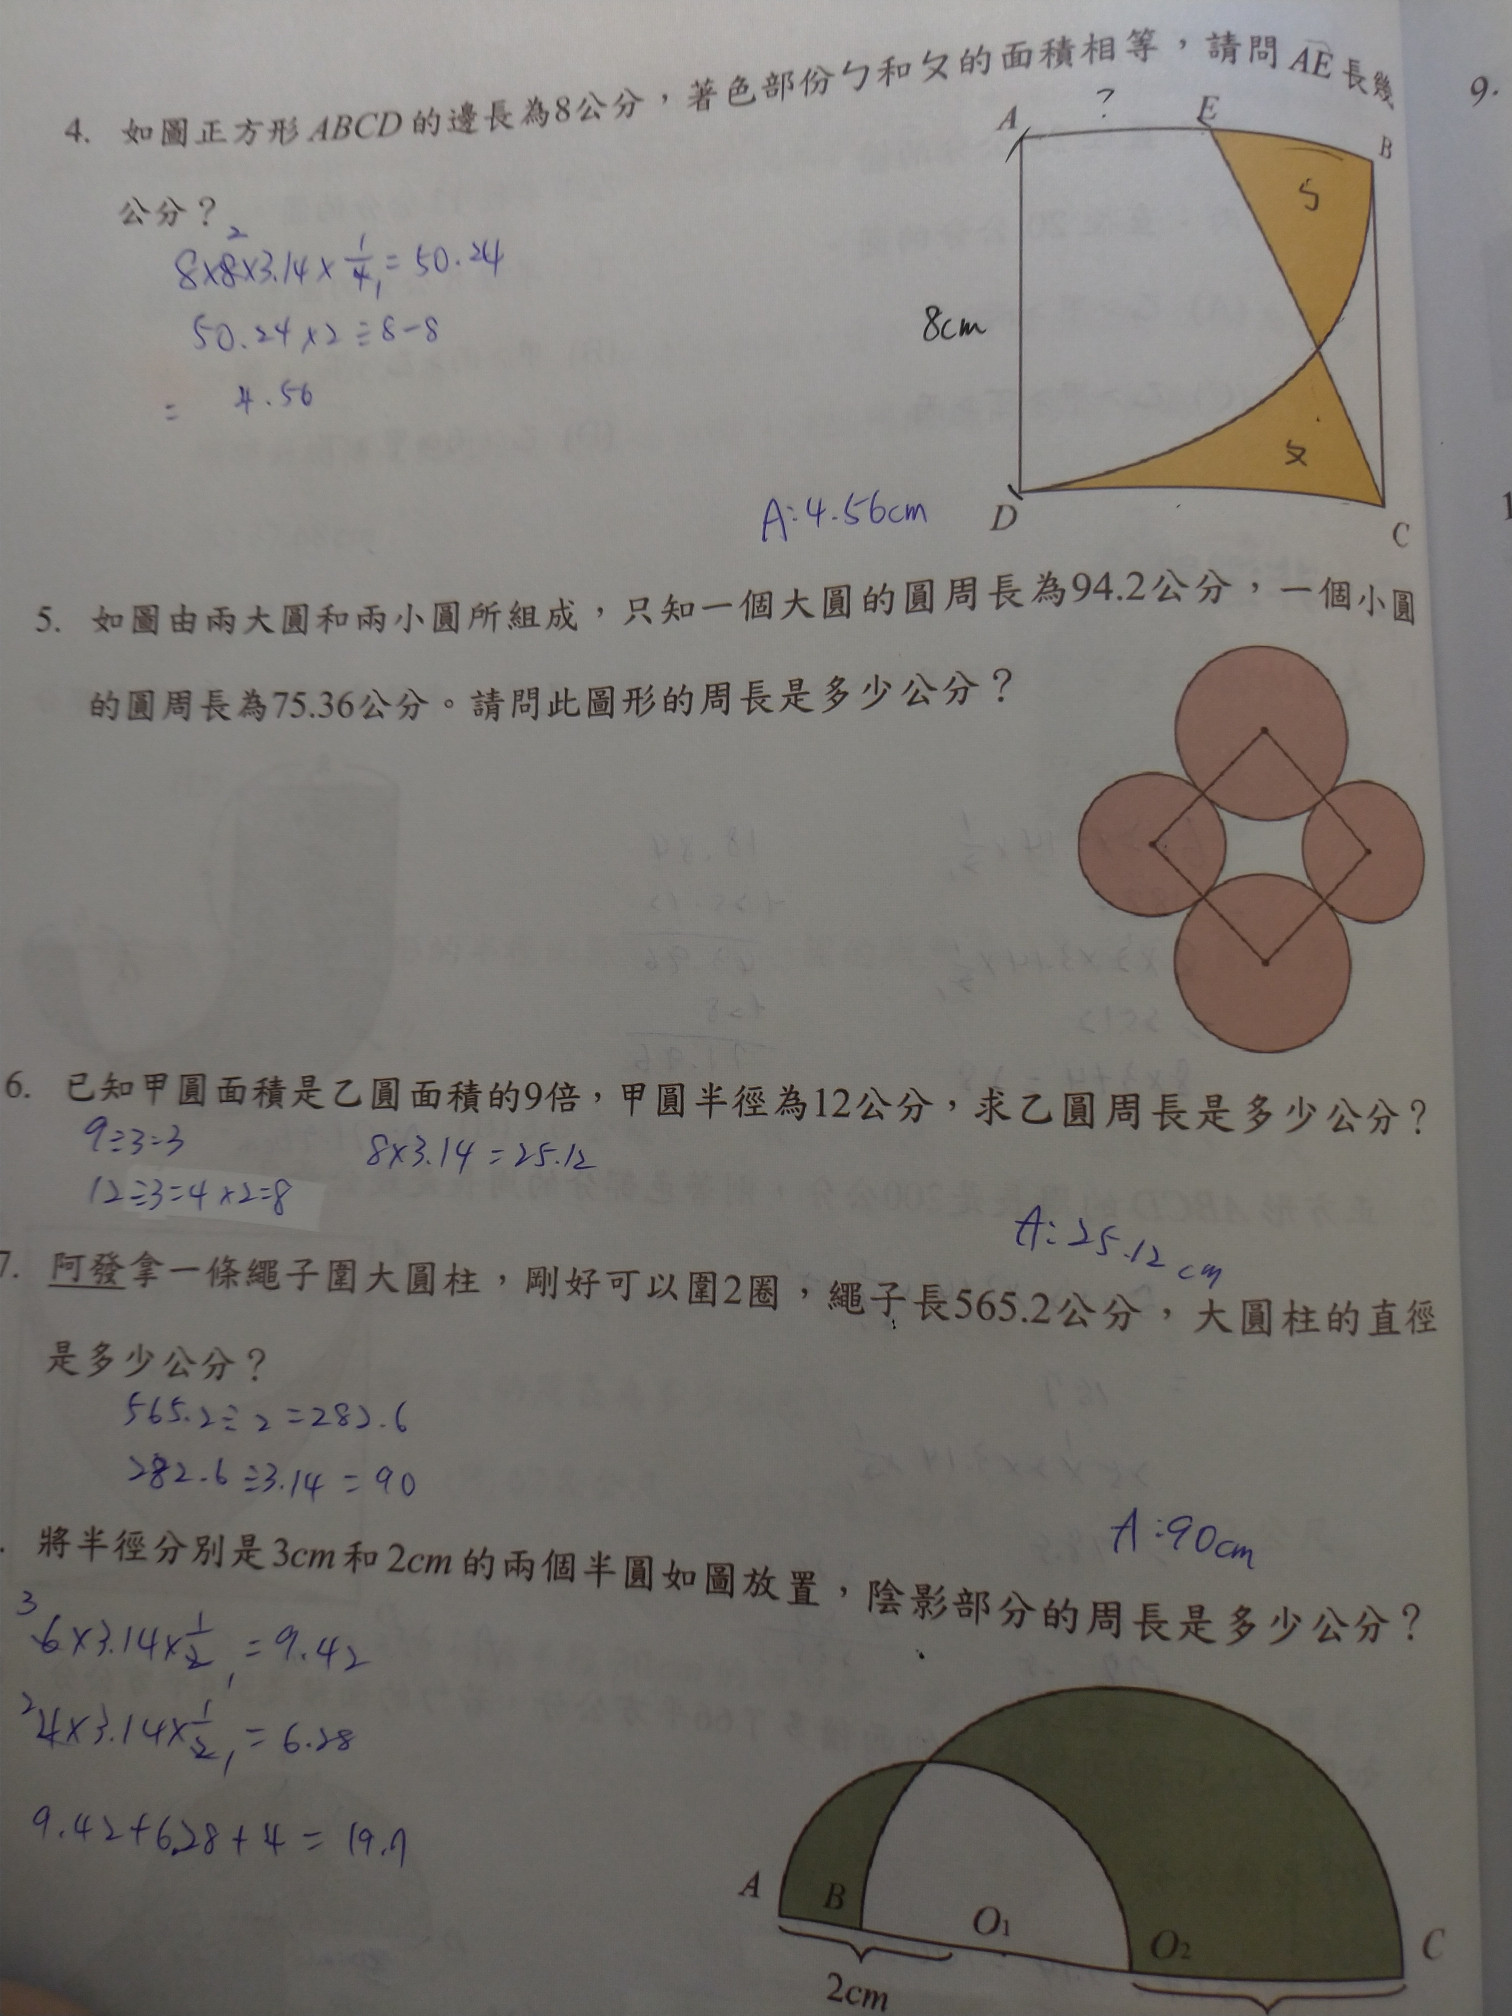 4. 如圖正方形ABCD的邊長為8公分，著色部份ㄅ和ㄆ的面積相等，請問AE長幾
公分？
8×8×3.14×1/4=50.24
2
1
50.24×2÷8-8
= 4.56
A:4.56cm
A
?
E
B
ㄅ
8cm
ㄆ
D
C
9.
5. 如圖由兩大圓和兩小圓所組成，只知一個大圓的圓周長為94.2公分，一個小圓
的圓周長為75.36公分。請問此圖形的周長是多少公分？
6. 已知甲圓面積是乙圓面積的9倍，甲圓半徑為12公分，求乙圓周長是多少公分？
9÷3=3
8×3.14=25.12
12÷3=4×2=8
A:25.12cm
7. 阿發拿一條繩子圍大圓柱，剛好可以圍2圈，繩子長565.2公分，大圓柱的直徑
是多少公分？
565.2÷2=282.6
282.6÷3.14=90
A:90cm
. 將半徑分別是3cm和2cm的兩個半圓如圖放置，陰影部分的周長是多少公分？
3
6×3.14×1/2=9.42
1
2
4×3.14×1/2=6.28
1
9.42+6.28+4=19.7
A
B
O1
O2
C
2cm